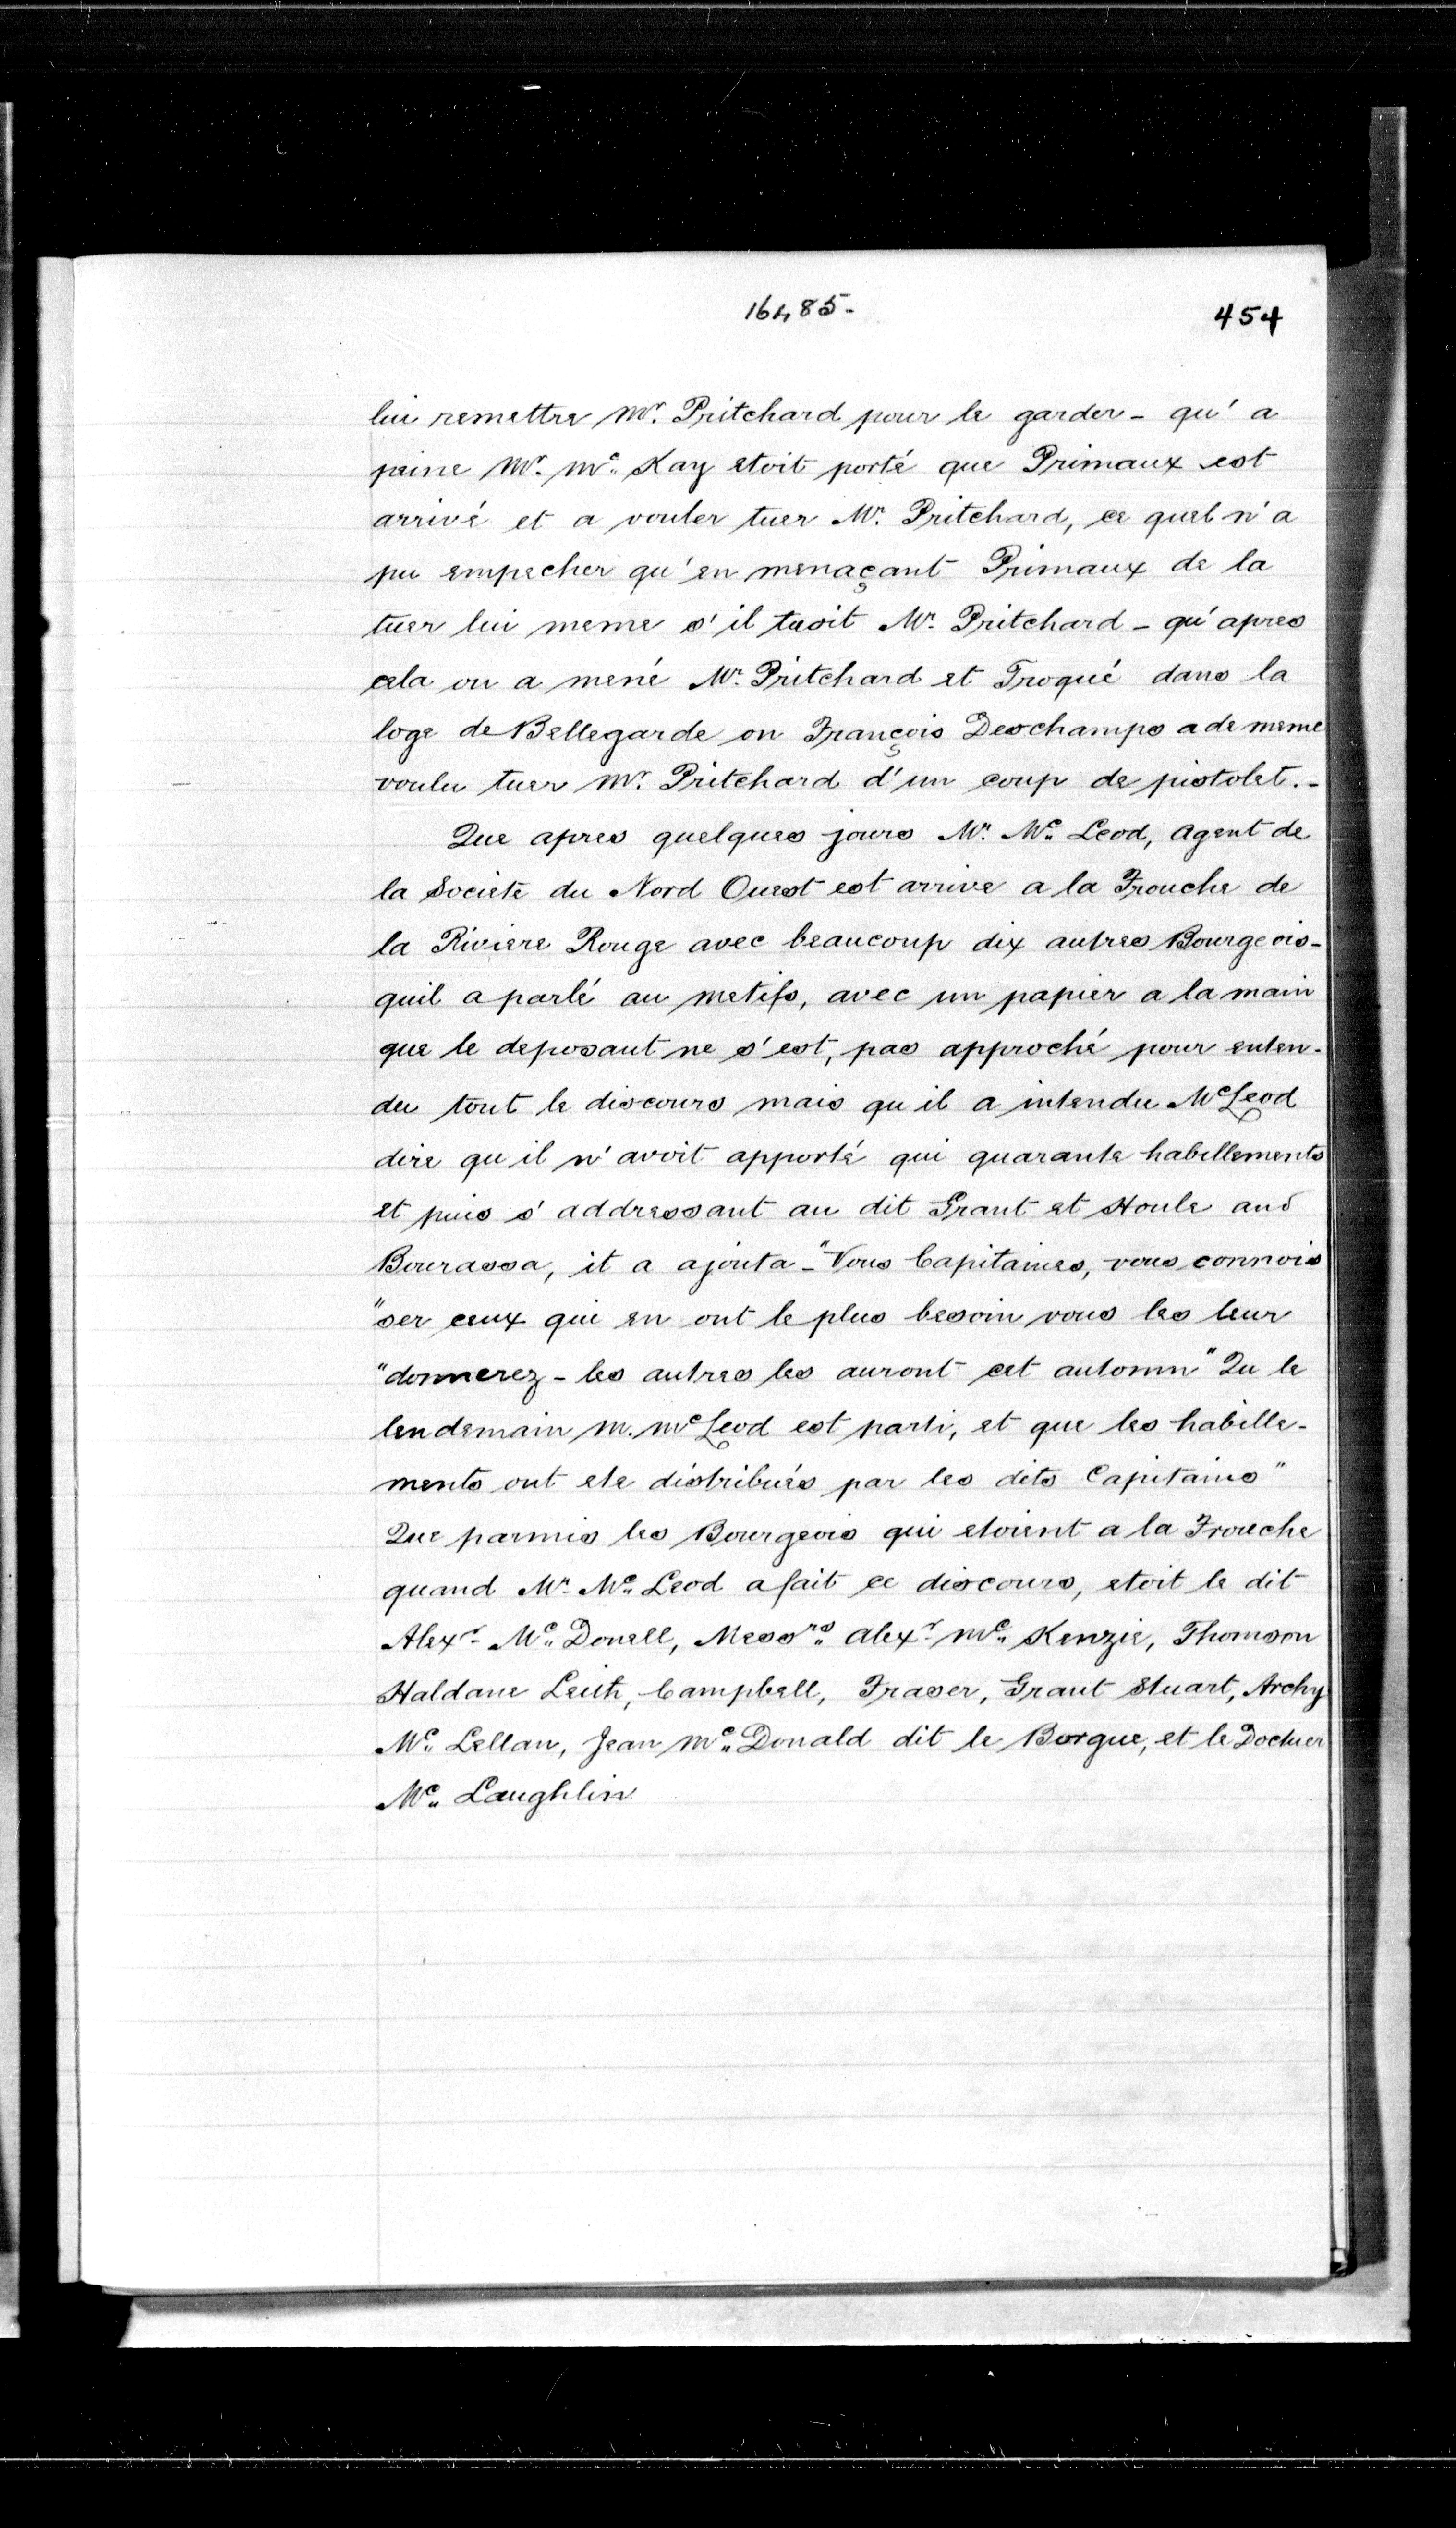 16485.
454
lui remettre Mr. Pritchard pour le garder - qu' a
peine Mr. Mc. Kay etoit porté que Primaux est
arrivé et a vouler tuer Mr. Pritchard, ce quel n'a
pu empecher qu'en menaçant Primaux de la
tuer lui meme s'il tuoit Mr. Pritchard - qu'apres
cela on a mené Mr. Pritchard et Troqué dans la
loge de Bellegarde on François Deschamps a de meme
voulu tuer Mr. Pritchard d'un coup de pistolet. -
Que apres quelques jours Mr. Mc. Leod, agent de
la Societe du Nord Ouest est arrive a la Frouche de
la Riviere Rouge avec beaucoup dix autres Bourgeois -
quil a parlé au metifs, avec un papier a la main
que le deposant ne s'est, pas approché pour enten-
du tout le discours mais qu il a intendu McLeod
dire qu il n'avoit apporté qui quarante habillements
et puis s'addressant au dit Grant et Houle and
Bourassa, it a ajouta - "Vous Capitaines, vous connois
"ser ceux qui en ont le plus besoin vous les leur
"donnerez - les autres les auront cet automn" Qu le
lendemain M. McLeod est parti, et que les habille-
ments ont ete distribués par les dits Capitains"
Que parmis les Bourgeois qui etoient a la Frouche
quand Mr. Mc. Leod a fait ce discours, etoit le dit
Alexr. Mc. Donell, Messrs. Alexr. Mc. Kenzie, Thomson
Haldane Leith, Campbell, Fraser, Grant Stuart, Archy
Mc. Lellan, Jean Mc. Donald dit le Borgue, et le Doctuer
Mc. Laughlin